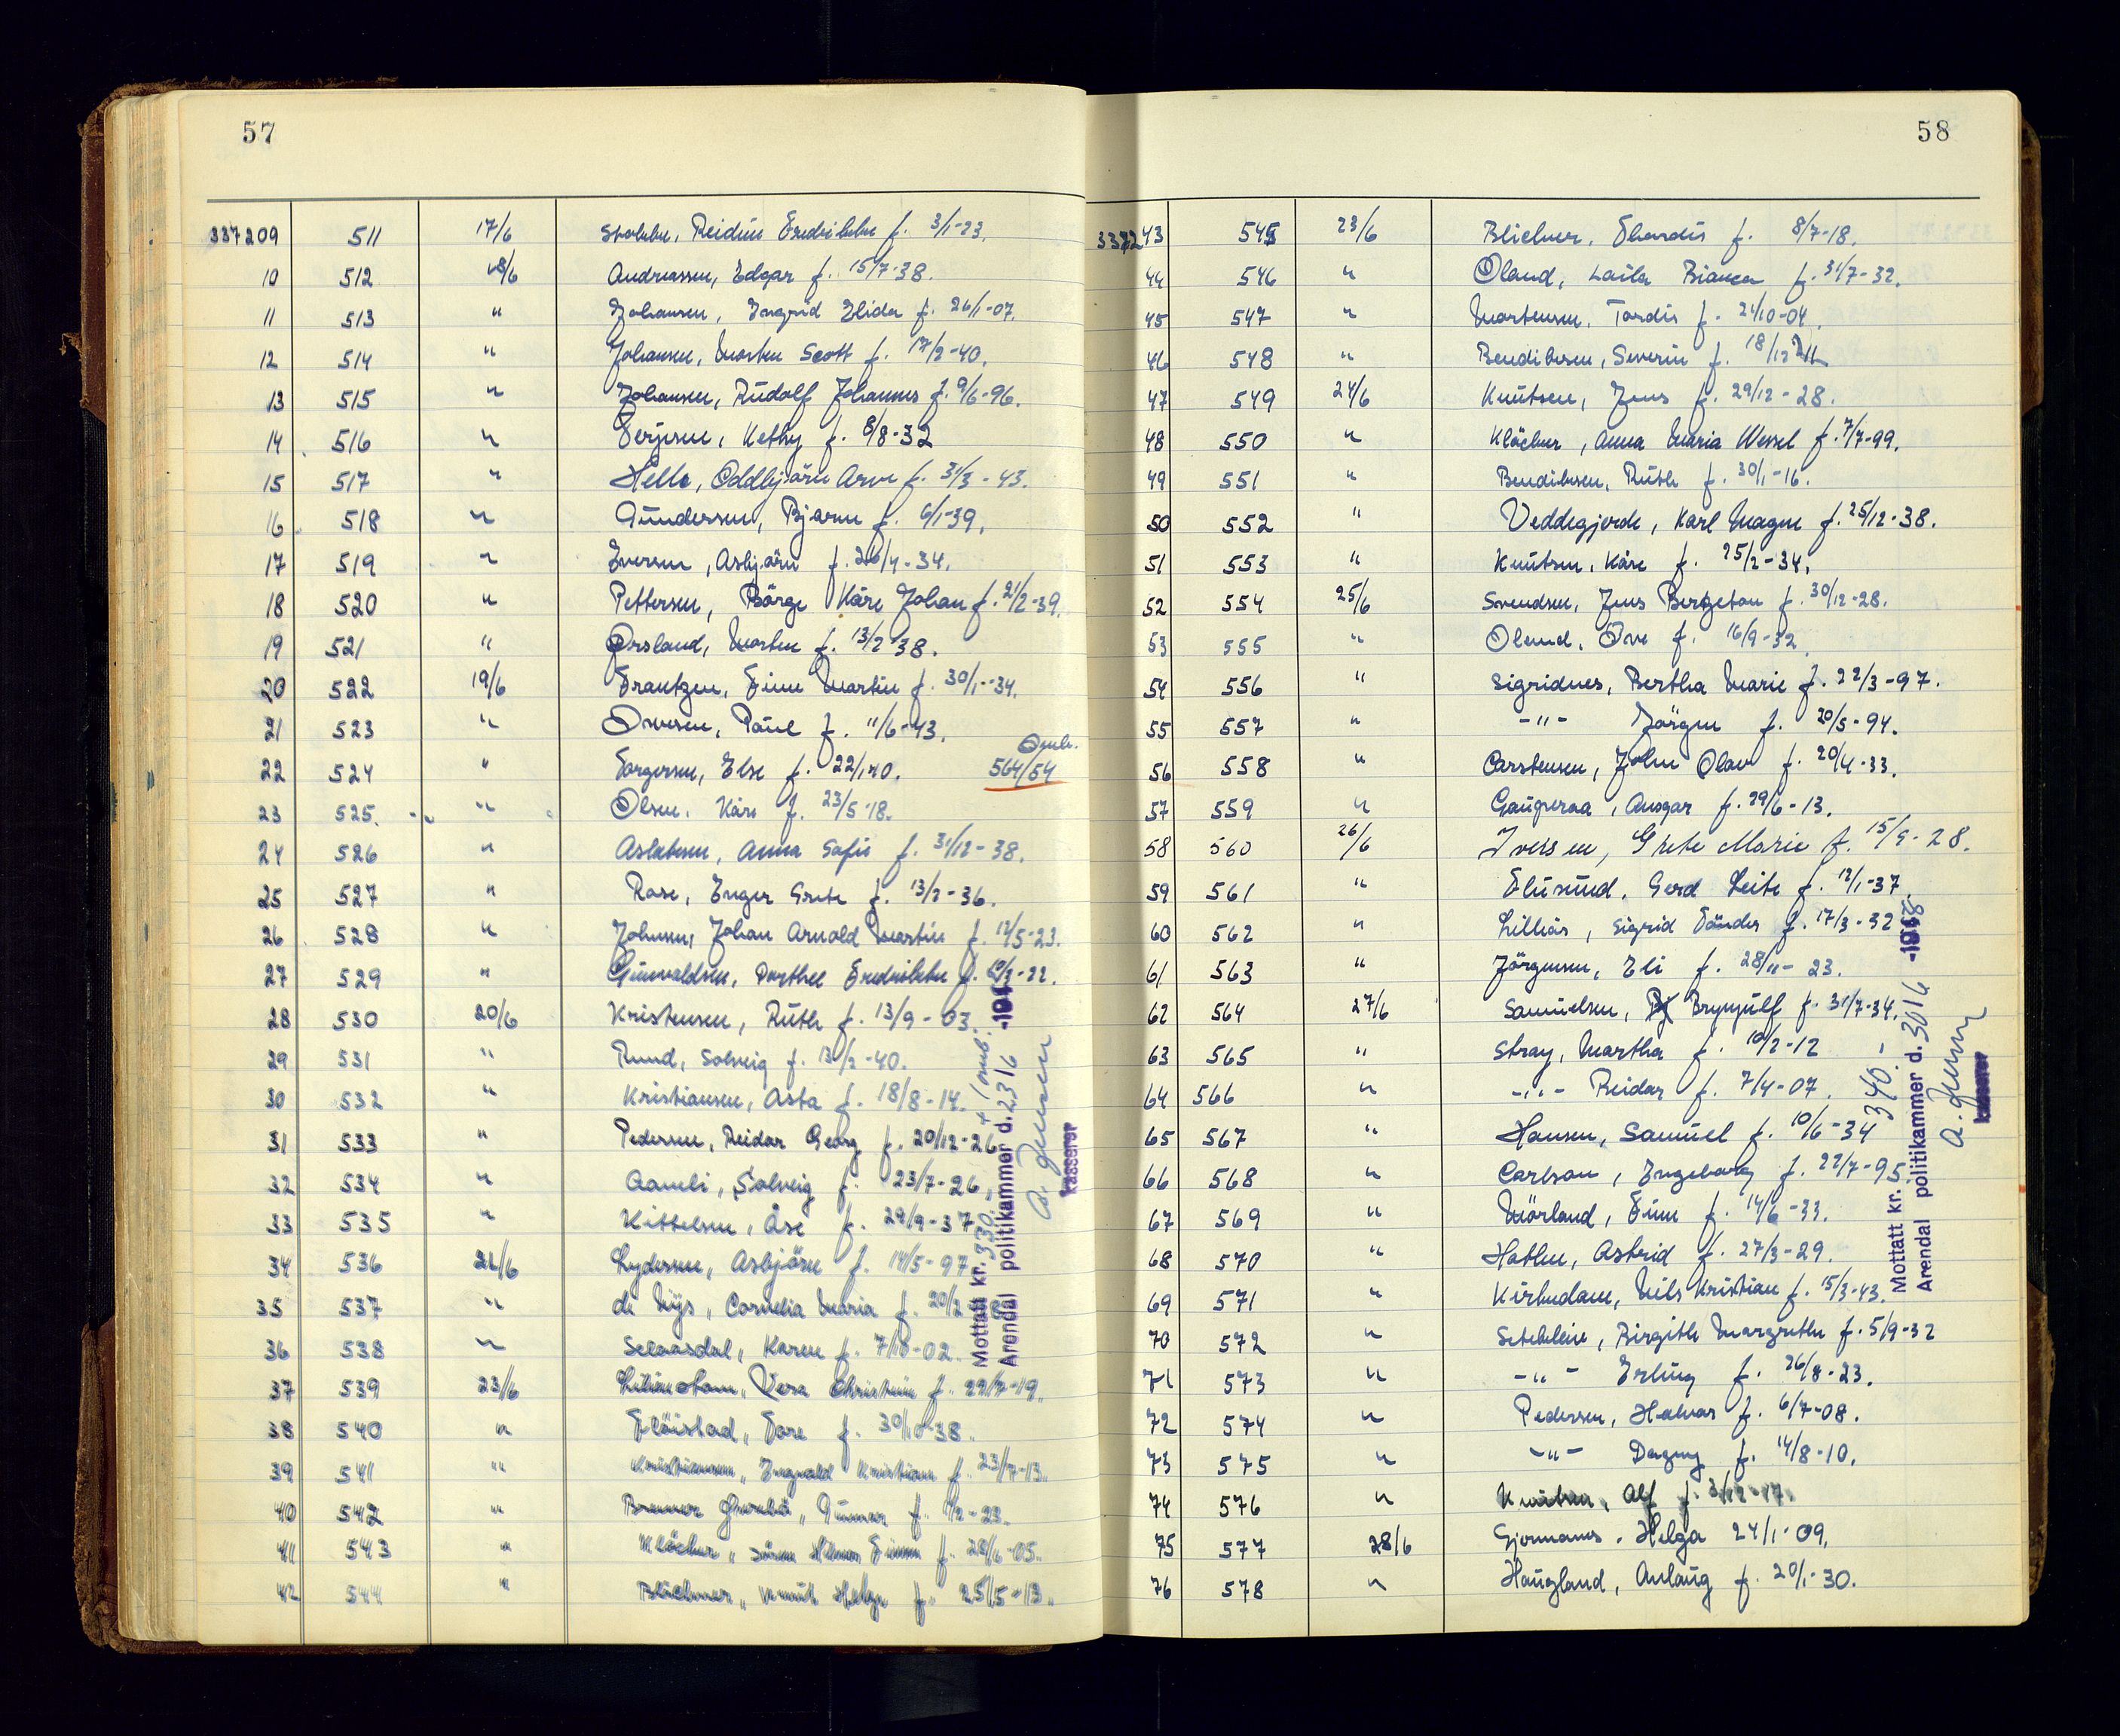 57
337209 511 17/6 Stokke, Reidun Fredrikke f. 3/1-23.
10 512 18/6 Andreassen, Edgar f. 15/7-38.
11 513 " Johansen, Ingrid Elida f. 26/1-07.
12 514 " Johansen, Morten Scott f. 17/2-40.
13 515 " Johansen, Rudolf Johannes f. 9/6-96.
14 516 " Terjesen, Kethy f. 8/8-32
15 517 " Helle, Oddbjörn Arve f. 31/3-43.
16 518 " Gundersen, Bjarne f. 6/1-39.
17 519 " Iversen, Asbjörn f. 20/4-34.
18 520 " Pettersen, Börge Kåre Johan f. 21/2-39.
19 521 " Ørsland, Morten f. 13/2-38.
20 522 19/6 Frantzen, Finn Martin f. 30/1-34.
21 523 " Ovesen, Paul f. 11/6-43.
22 524 " Torgersen, Else f. 22/1-40. Omb. 564/54
23 525 " Olsen, Kåre f. 23/5-18.
24 526 " Aslaksen, Anna Sofie f. 31/12-38.
25 527 " Rose, Inger Grete f. 13/2-36.
26 528 " Johnsen, Johan Arnold Martin f. 12/5-23.
27 529 " Gunvaldsen, Dorthee Fredrikke f. -22.
28 530 20/6 Kristensen, Ruth f. 13/9-03.
29 531 " Ruud, Solveig f. 13/2-40.
30 532 " Kristiansen, Asta f. 18/8-14.
31 533 " Pedersen, Reidar Georg f. 20/12-26
32 534 " Aamli, Solveig f. 23/7-26.
33 535 " Kittelsen, Åse f. 29/9-37
34 536 21/6 Lydersen, Asbjörn f. 14/5-97
35 537 " de Nijs, Cornelia Maria f. 20/2
36 538 " Selaasdal, Karen f. 7/10-02.
37 539 23/6 Vera Christine f. 29/7-19.
38 540 " Flöistad, Tore f. 30/10-38.
39 541 " Kristiansen, Ingvald Kristian f. 23/7-13.
40 542 " Gunnar f. -23.
41 543 " Klöcker, Sören Finn f. 28/6-05.
42 544 " Blichner, Knut Helge f. 25/5-13.
Mottatt kr. 330.
Arendal politikammer d. 23/6
+ 1 omb.
A. Jensen
kasserer
58
337243 545 23/6 Blichner, Thordis f. 8/7-18.
44 546 " Øland, Laila Bianca f. 31/7-32.
45 547 " Mortensen, Tordis f. 21/10-04.
46 548 " Bendiksen, Severin f. 18/12
47 549 24/6 Knutsen, Jens f. 29/12-28.
48 550 " Klöcker, Anna Maria Wessel f. 7/7-99.
49 551 " Bendiksen, Ruth f. 30/1-16.
50 552 " Veddegjerde, Karl Magne f. 25/12-38.
51 553 " Knutsen, Kåre f. 25/2-34.
52 554 25/6 Svendsen, Jens Bergeton f. 30/12-28.
53 555 " Ove f. 16/9-32.
54 556 " Sigridnes, Bertha Marie f. 22/3-97.
55 557 " -"- Jörgen f. 20/5-94.
56 558 " Carstensen, John Olav f. 20/4-33.
57 559 " Gauperaa, Ansgar f. 29/6-13.
58 560 26/6 Iversen, Grete Marie f. 15/9-28.
59 561 " Gerd f. 12/1-37.
60 562 " Lilliås, Sigrid f. 17/3-32
61 563 " Jörgensen, Eli f. 28/11-23.
62 564 27/6 Samuelsen, Brynjulf f. 31/7-34.
63 565 " Stray, Martha f. 10/2-12
64 566 " -"- Reidar f. 7/4-07.
65 567 " Hansen, Samuel f. 10/6-34
66 568 " Carlson, Ingeborg f. 22/7-95
67 569 " Mörland, Finn f. 14/6-33.
68 570 " Hatlen, Astrid f. 27/3-29.
69 571 " Kirkedam, Nils Kristian f. 15/3-43.
70 572 " Setekleiv, Birgithe Margrethe f. 5/9-32
71 573 " -"- Erling f. 26/8-23.
72 574 " Pedersen, Halvor f. 6/7-08.
73 575 " -"- Dagny f. 14/8-10.
74 576 " Knutsen, Alf f. 3/12-17.
75 577 28/6 Gjermanes, Helga 24/1-09.
76 578 " Haugland, Anlaug f. 20/1-30.
Mottatt kr. 340.
Arendal politikammer d. 30/6
A. Jensen
kasserer